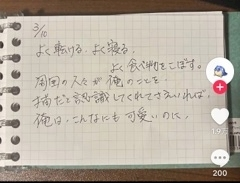 3/10
よく転ける、よく寝る、
よく食べ物をこぼす。
周囲の人々が俺のことを
猫だと認識してくれてさえいれば、
俺は、こんなにも可愛いのに。
197
200